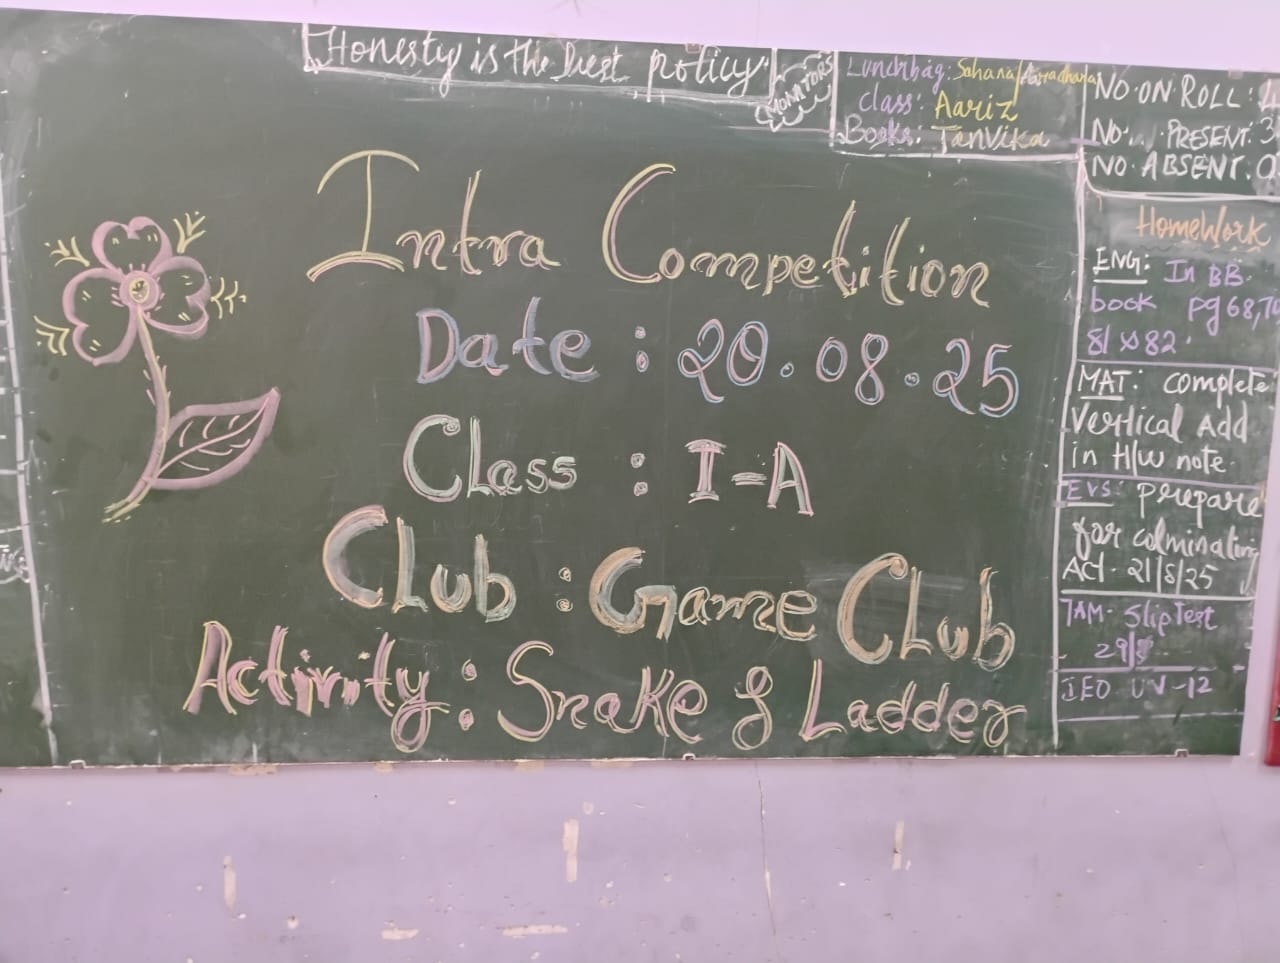 Honesty is the best policy.
MONITORS
Lunchbag: Sahana/Aaradhana
class: Aariz
Books: Tanvika
NO. ON ROLL: 4
No. PRESENT: 3
NO. ABSENT: 0
Intra Competition
Date : 20.08.25
Class : I-A
Club : Game Club
Activity : Snake & Ladder
HomeWork
ENG: In BB
book pg 68,
81 & 82.
MAT: complete
Vertical Add
in H/w note.
EVS: prepare
for colminating
Act. 21/8/25
TAM- Slip Test
29/8
IEO UV-12